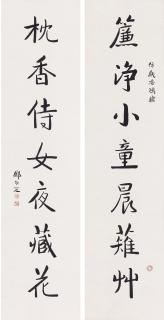 簾净小童晨薙艸
枕香侍女夜藏花